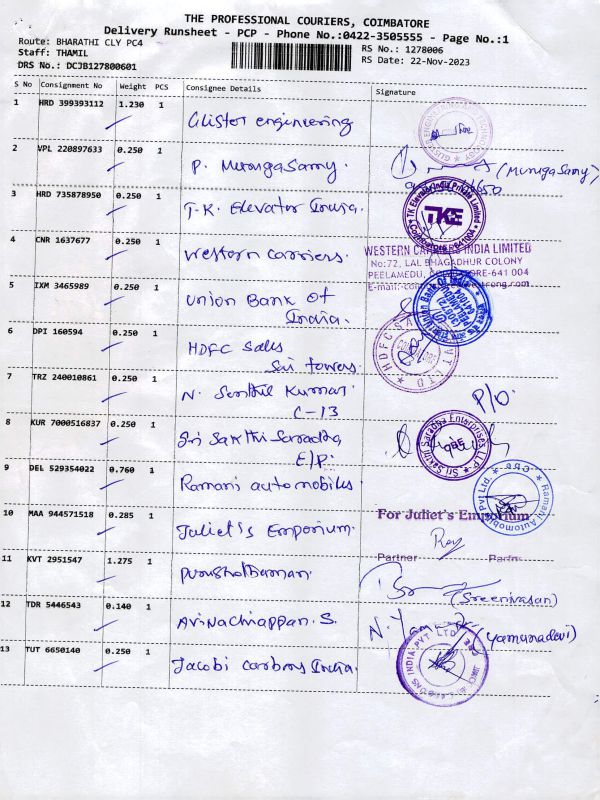 THE PROFESSIONAL COURIERS, COIMBATORE
Delivery Runsheet - PCP - Phone No.:0422-3505555 - Page No.:1
Route: BHARATHI CLY PC4
RS No.: 1278006
Staff: THAMIL
RS Date: 22-Nov-2023
DRS No.: DCJB127800601
S No Consignment No Weight PCS Consignee Details Signature
1 HRD 399393112 1.230 1 Glister engineering
2 VPL 220897633 0.250 1 P. Murugasamy. (Murugasamy)
3 HRD 735878950 0.250 1 T.K. Elevator India.
TK Elevator India Private Limited
TKE
Coimbatore 641004
4 CNR 1637677 0.250 1 Western carriers.
WESTERN CARRIERS INDIA LIMITED
No:72, LAL BHAGADHUR COLONY
PEELAMEDU, COIMBATORE-641 004
5 IXM 3465989 0.250 1 Union Bank of
India.
Union Bank Of India
6 DPI 160594 0.250 1 HDFC Sales
Sai towers
7 TRZ 240010861 0.250 1 N. Senthil Kumar
C-13
P/O.
8 KUR 7000516837 0.250 1 Sri Sakthi Saradha
E/P.
Sri Sakthi Saradha Enterprises LLP
9 DEL 529354022 0.760 1 Ramani automobiles
Ramani Automobiles Pvt Ltd.
10 MAA 944571518 0.285 1 Juliet's Emporium.
For Juliet's Emporium
Partner
11 KVT 2951547 1.275 1 Purushothaman.
(Sreenivasan)
12 TDR 5446543 0.140 1 Arunachiappan. S.
(Yamunadevi)
13 TUT 6650140 0.250 1 Jacobi carbons India.